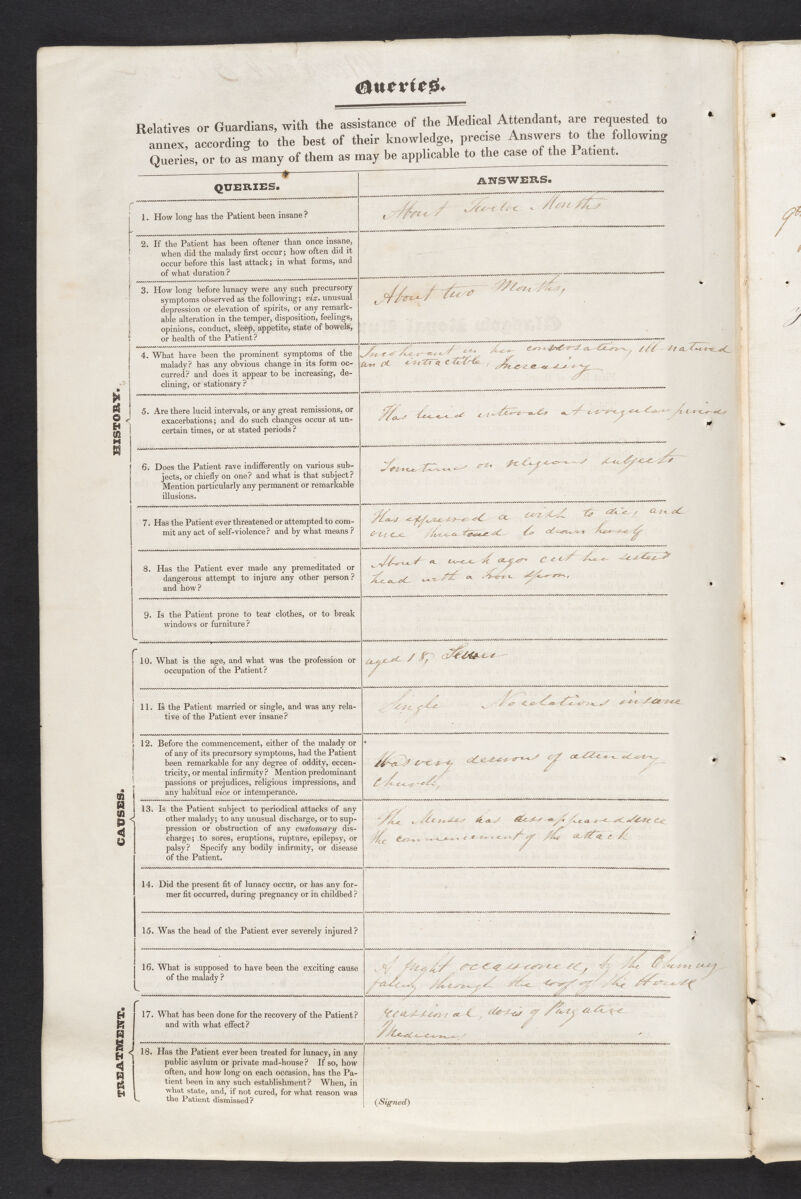 Queries.
Relatives or Guardians, with the assistance of the Medical Attendant, are requested to
annex, according to the best of their knowledge, precise Answers to the following
Queries, or to as many of them as may be applicable to the case of the Patient.
QUERIES.
ANSWERS.
HISTORY.
1. How long has the Patient been insane?
About Twelve Months
2. If the Patient has been oftener than once insane,
when did the malady first occur; how often did it
occur before this last attack; in what forms, and
of what duration?
3. How long before lunacy were any such precursory
symptoms observed as the following; viz. unusual
depression or elevation of spirits, or any remark-
able alteration in the temper, disposition, feelings,
opinions, conduct, sleep, appetite, state of bowels,
or health of the Patient?
About two Months,
4. What have been the prominent symptoms of the
malady? has any obvious change in its form oc-
curred? and does it appear to be increasing, de-
clining, or stationary?
Incoherent in her conversation, ill-natured
and intractible. Increasing
5. Are there lucid intervals, or any great remissions, or
exacerbations; and do such changes occur at un-
certain times, or at stated periods?
Has lucid intervals at irregular periods
6. Does the Patient rave indifferently on various sub-
jects, or chiefly on one? and what is that subject?
Mention particularly any permanent or remarkable
illusions.
Sometimes on religious subjects
7. Has the Patient ever threatened or attempted to com-
mit any act of self-violence? and by what means?
Has expressed a wish to die, and
once threatened to drown herself
8. Has the Patient ever made any premeditated or
dangerous attempt to injure any other person?
and how?
About a week ago cut her sister's
head with a Iron Spoon.
9. Is the Patient prone to tear clothes, or to break
windows or furniture?
CAUSES.
10. What is the age, and what was the profession or
occupation of the Patient?
aged 18,
11. Is the Patient married or single, and was any rela-
tive of the Patient ever insane?
Single No relations insane
12. Before the commencement, either of the malady or
of any of its precursory symptoms, had the Patient
been remarkable for any degree of oddity, eccen-
tricity, or mental infirmity? Mention predominant
passions or prejudices, religious impressions, and
any habitual vice or intemperance.
Was very desirous of attending
Church,
13. Is the Patient subject to periodical attacks of any
other malady; to any unusual discharge, or to sup-
pression or obstruction of any customary dis-
charge; to sores, eruptions, rupture, epilepsy, or
palsy? Specify any bodily infirmity, or disease
of the Patient.
The Menses has dissappeared since
the commencement of the attack
14. Did the present fit of lunacy occur, or has any for-
mer fit occurred, during pregnancy or in childbed?
15. Was the head of the Patient ever severely injured?
16. What is supposed to have been the exciting cause
of the malady?
A fright occassioned, by the Chimney
falling through the roof of the House
TREATMENT.
17. What has been done for the recovery of the Patient?
and with what effect?
occassional doses of Purgative
Medicine
18. Has the Patient ever been treated for lunacy, in any
public asylum or private mad-house? If so, how
often, and how long on each occasion, has the Pa-
tient been in any such establishment? When, in
what state, and, if not cured, for what reason was
the Patient dismissed?
(Signed)